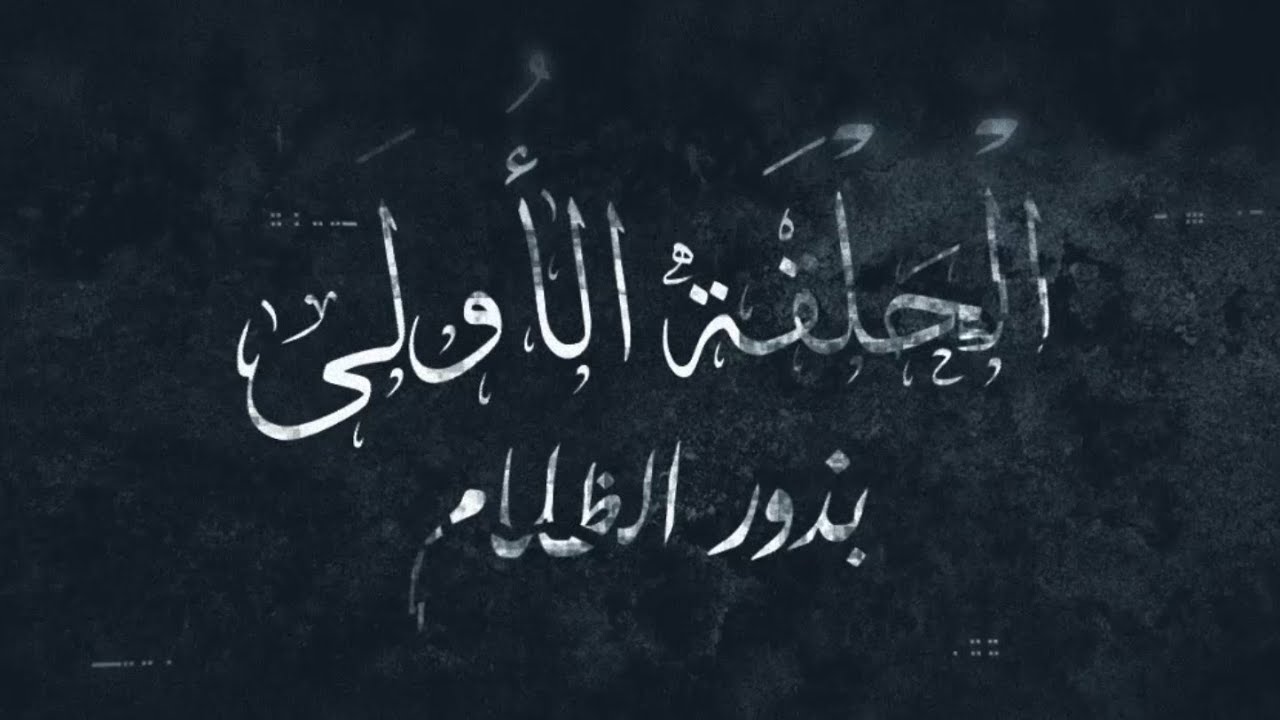 الْحَلْقَةُ الأُولَى
بذور الظلام